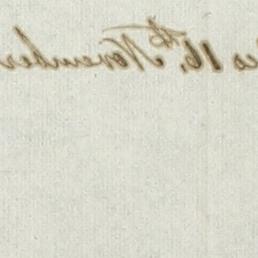 16th, November